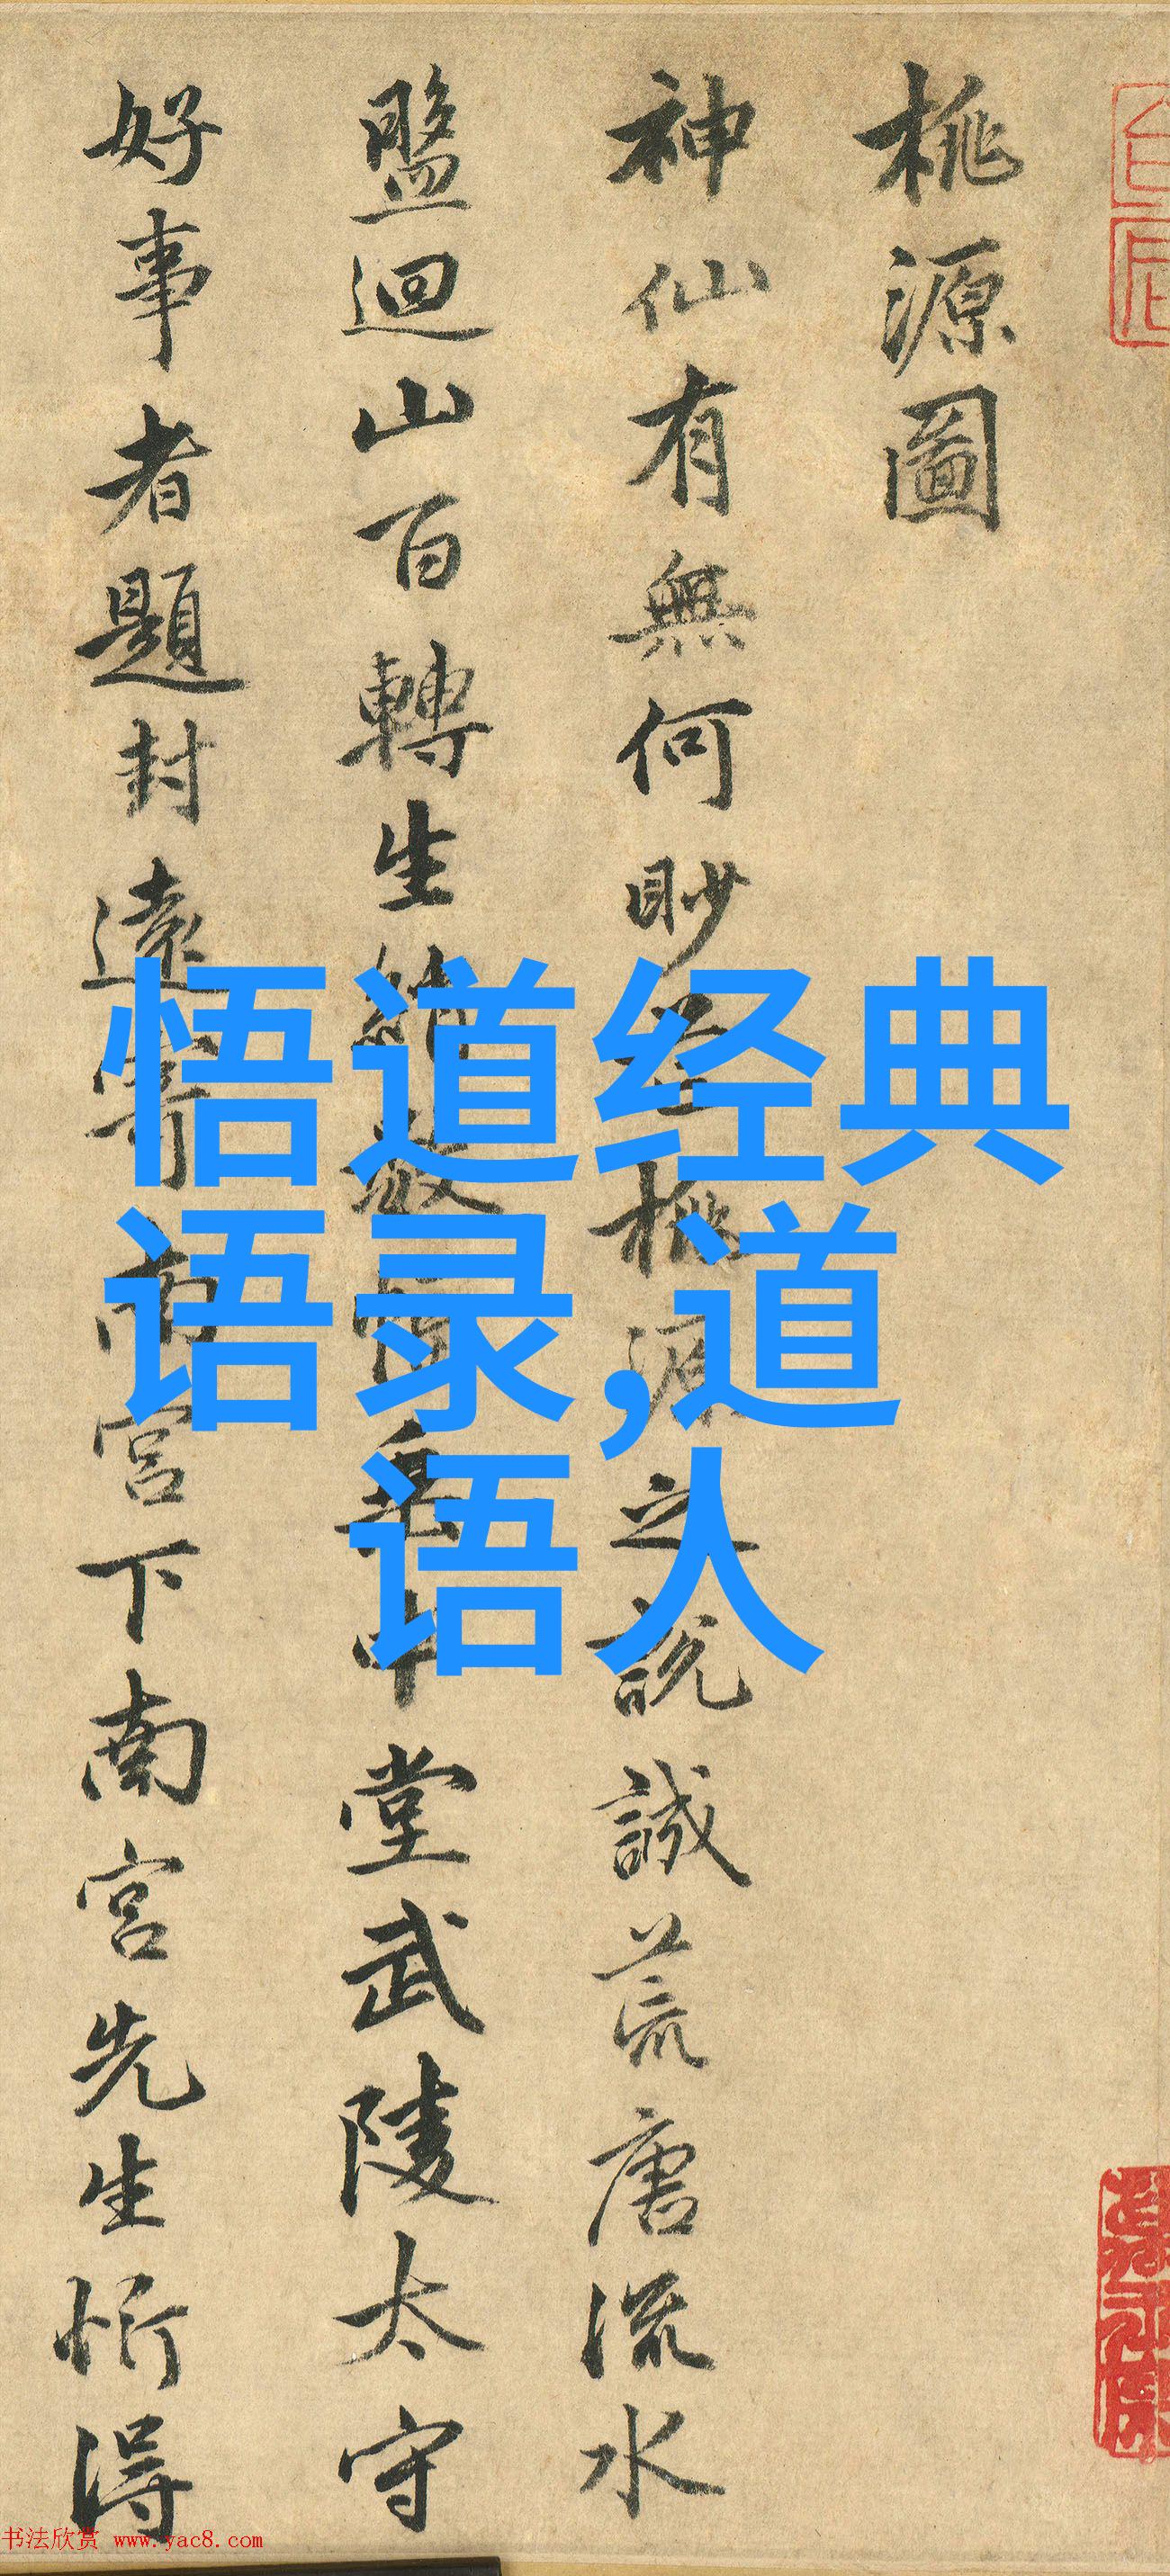 桃源圖
神仙有無何眇茫桃源之說誠荒唐流水
盤迴山百轉生綃數幅垂中堂武陵太守
好事者題封遠寄南宮下南宮先生忻得
悟道经典
语录,道
语人
书法欣赏 www.yac8.com